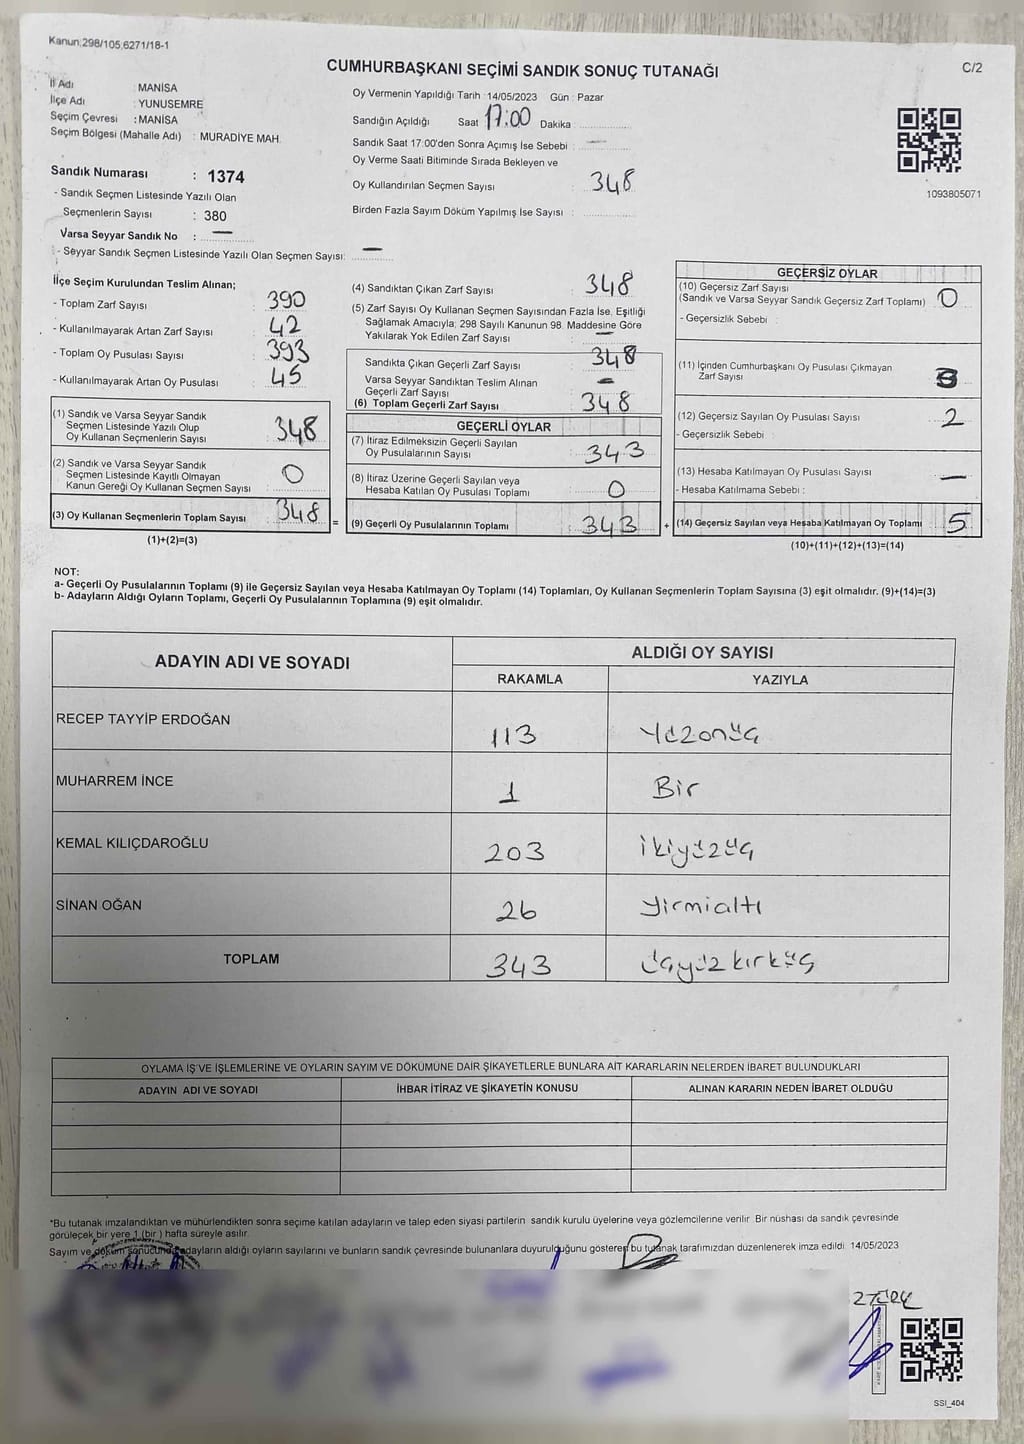 Kanun;298/105,6271/18-1
CUMHURBAŞKANI SEÇİMİ SANDIK SONUÇ TUTANAĞI
C/2
İl Adı : MANİSA
İlçe Adı : YUNUSEMRE
Seçim Çevresi : MANİSA
Seçim Bölgesi (Mahalle Adı) : MURADİYE MAH.
Sandık Numarası : 1374
- Sandık Seçmen Listesinde Yazılı Olan
Seçmenlerin Sayısı : 380
Varsa Seyyar Sandık No : —
- Seyyar Sandık Seçmen Listesinde Yazılı Olan Seçmen Sayısı: —
Oy Vermenin Yapıldığı Tarih : 14/05/2023 Gün : Pazar
Sandığın Açıldığı Saat 17:00 Dakika :
Sandık Saat 17:00'den Sonra Açımış İse Sebebi : —
Oy Verme Saati Bitiminde Sırada Bekleyen ve
Oy Kullandırılan Seçmen Sayısı : 348
Birden Fazla Sayım Döküm Yapılmış İse Sayısı :
1093805071
İlçe Seçim Kurulundan Teslim Alınan;
- Toplam Zarf Sayısı : 390
- Kullanılmayarak Artan Zarf Sayısı : 42
- Toplam Oy Pusulası Sayısı : 393
- Kullanılmayarak Artan Oy Pusulası : 45
(1) Sandık ve Varsa Seyyar Sandık
Seçmen Listesinde Yazılı Olup
Oy Kullanan Seçmenlerin Sayısı : 348
(2) Sandık ve Varsa Seyyar Sandık
Seçmen Listesinde Kayıtlı Olmayan
Kanun Gereği Oy Kullanan Seçmen Sayısı : 0
(3) Oy Kullanan Seçmenlerin Toplam Sayısı : 348
(1)+(2)=(3)
(4) Sandıktan Çıkan Zarf Sayısı : 348
(5) Zarf Sayısı Oy Kullanan Seçmen Sayısından Fazla İse, Eşitliği
Sağlamak Amacıyla; 298 Sayılı Kanunun 98. Maddesine Göre
Yakılarak Yok Edilen Zarf Sayısı : —
Sandıkta Çıkan Geçerli Zarf Sayısı : 348
Varsa Seyyar Sandıktan Teslim Alınan
Geçerli Zarf Sayısı : —
(6) Toplam Geçerli Zarf Sayısı : 348
GEÇERLİ OYLAR
(7) İtiraz Edilmeksizin Geçerli Sayılan
Oy Pusulalarının Sayısı : 343
(8) İtiraz Üzerine Geçerli Sayılan veya
Hesaba Katılan Oy Pusulası Toplamı : 0
= (9) Geçerli Oy Pusulalarının Toplamı : 343
GEÇERSİZ OYLAR
(10) Geçersiz Zarf Sayısı
(Sandık ve Varsa Seyyar Sandık Geçersiz Zarf Toplamı) : 0
- Geçersizlik Sebebi :
(11) İçinden Cumhurbaşkanı Oy Pusulası Çıkmayan
Zarf Sayısı : 3
(12) Geçersiz Sayılan Oy Pusulası Sayısı : 2
- Geçersizlik Sebebi :
(13) Hesaba Katılmayan Oy Pusulası Sayısı : —
- Hesaba Katılmama Sebebi :
+ (14) Geçersiz Sayılan veya Hesaba Katılmayan Oy Toplamı : 5
(10)+(11)+(12)+(13)=(14)
NOT:
a- Geçerli Oy Pusulalarının Toplamı (9) ile Geçersiz Sayılan veya Hesaba Katılmayan Oy Toplamı (14) Toplamları, Oy Kullanan Seçmenlerin Toplam Sayısına (3) eşit olmalıdır. (9)+(14)=(3)
b- Adayların Aldığı Oyların Toplamı, Geçerli Oy Pusulalarının Toplamına (9) eşit olmalıdır.
ADAYIN ADI VE SOYADI
ALDIĞI OY SAYISI
RAKAMLA YAZIYLA
RECEP TAYYİP ERDOĞAN 113 Yüzonüç
MUHARREM İNCE 1 Bir
KEMAL KILIÇDAROĞLU 203 ikiyüzüç
SİNAN OĞAN 26 yirmialtı
TOPLAM 343 üçyüzkırküç
OYLAMA İŞ VE İŞLEMLERİNE VE OYLARIN SAYIM VE DÖKÜMÜNE DAİR ŞİKAYETLERLE BUNLARA AİT KARARLARIN NELERDEN İBARET BULUNDUKLARI
ADAYIN ADI VE SOYADI İHBAR İTİRAZ VE ŞİKAYETİN KONUSU ALINAN KARARIN NEDEN İBARET OLDUĞU
*Bu tutanak imzalandıktan ve mühürlendikten sonra seçime katılan adayların ve talep eden siyasi partilerin sandık kurulu üyelerine veya gözlemcilerine verilir. Bir nüshası da sandık çevresinde
görülecek bir yere 1 (bir ) hafta süreyle asılır.
Sayım ve döküm sonucunda adayların aldığı oyların sayılarını ve bunların sandık çevresinde bulunanlara duyurulduğunu gösteren bu tutanak tarafımızdan düzenlenerek imza edildi. 14/05/2023
SSI_404